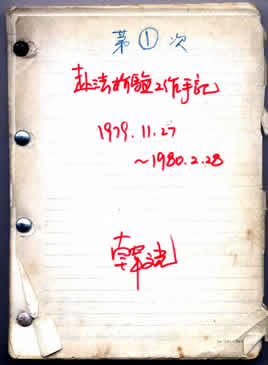 第①次
赴法检验工作手记
1979.11.27
~1980.2.28